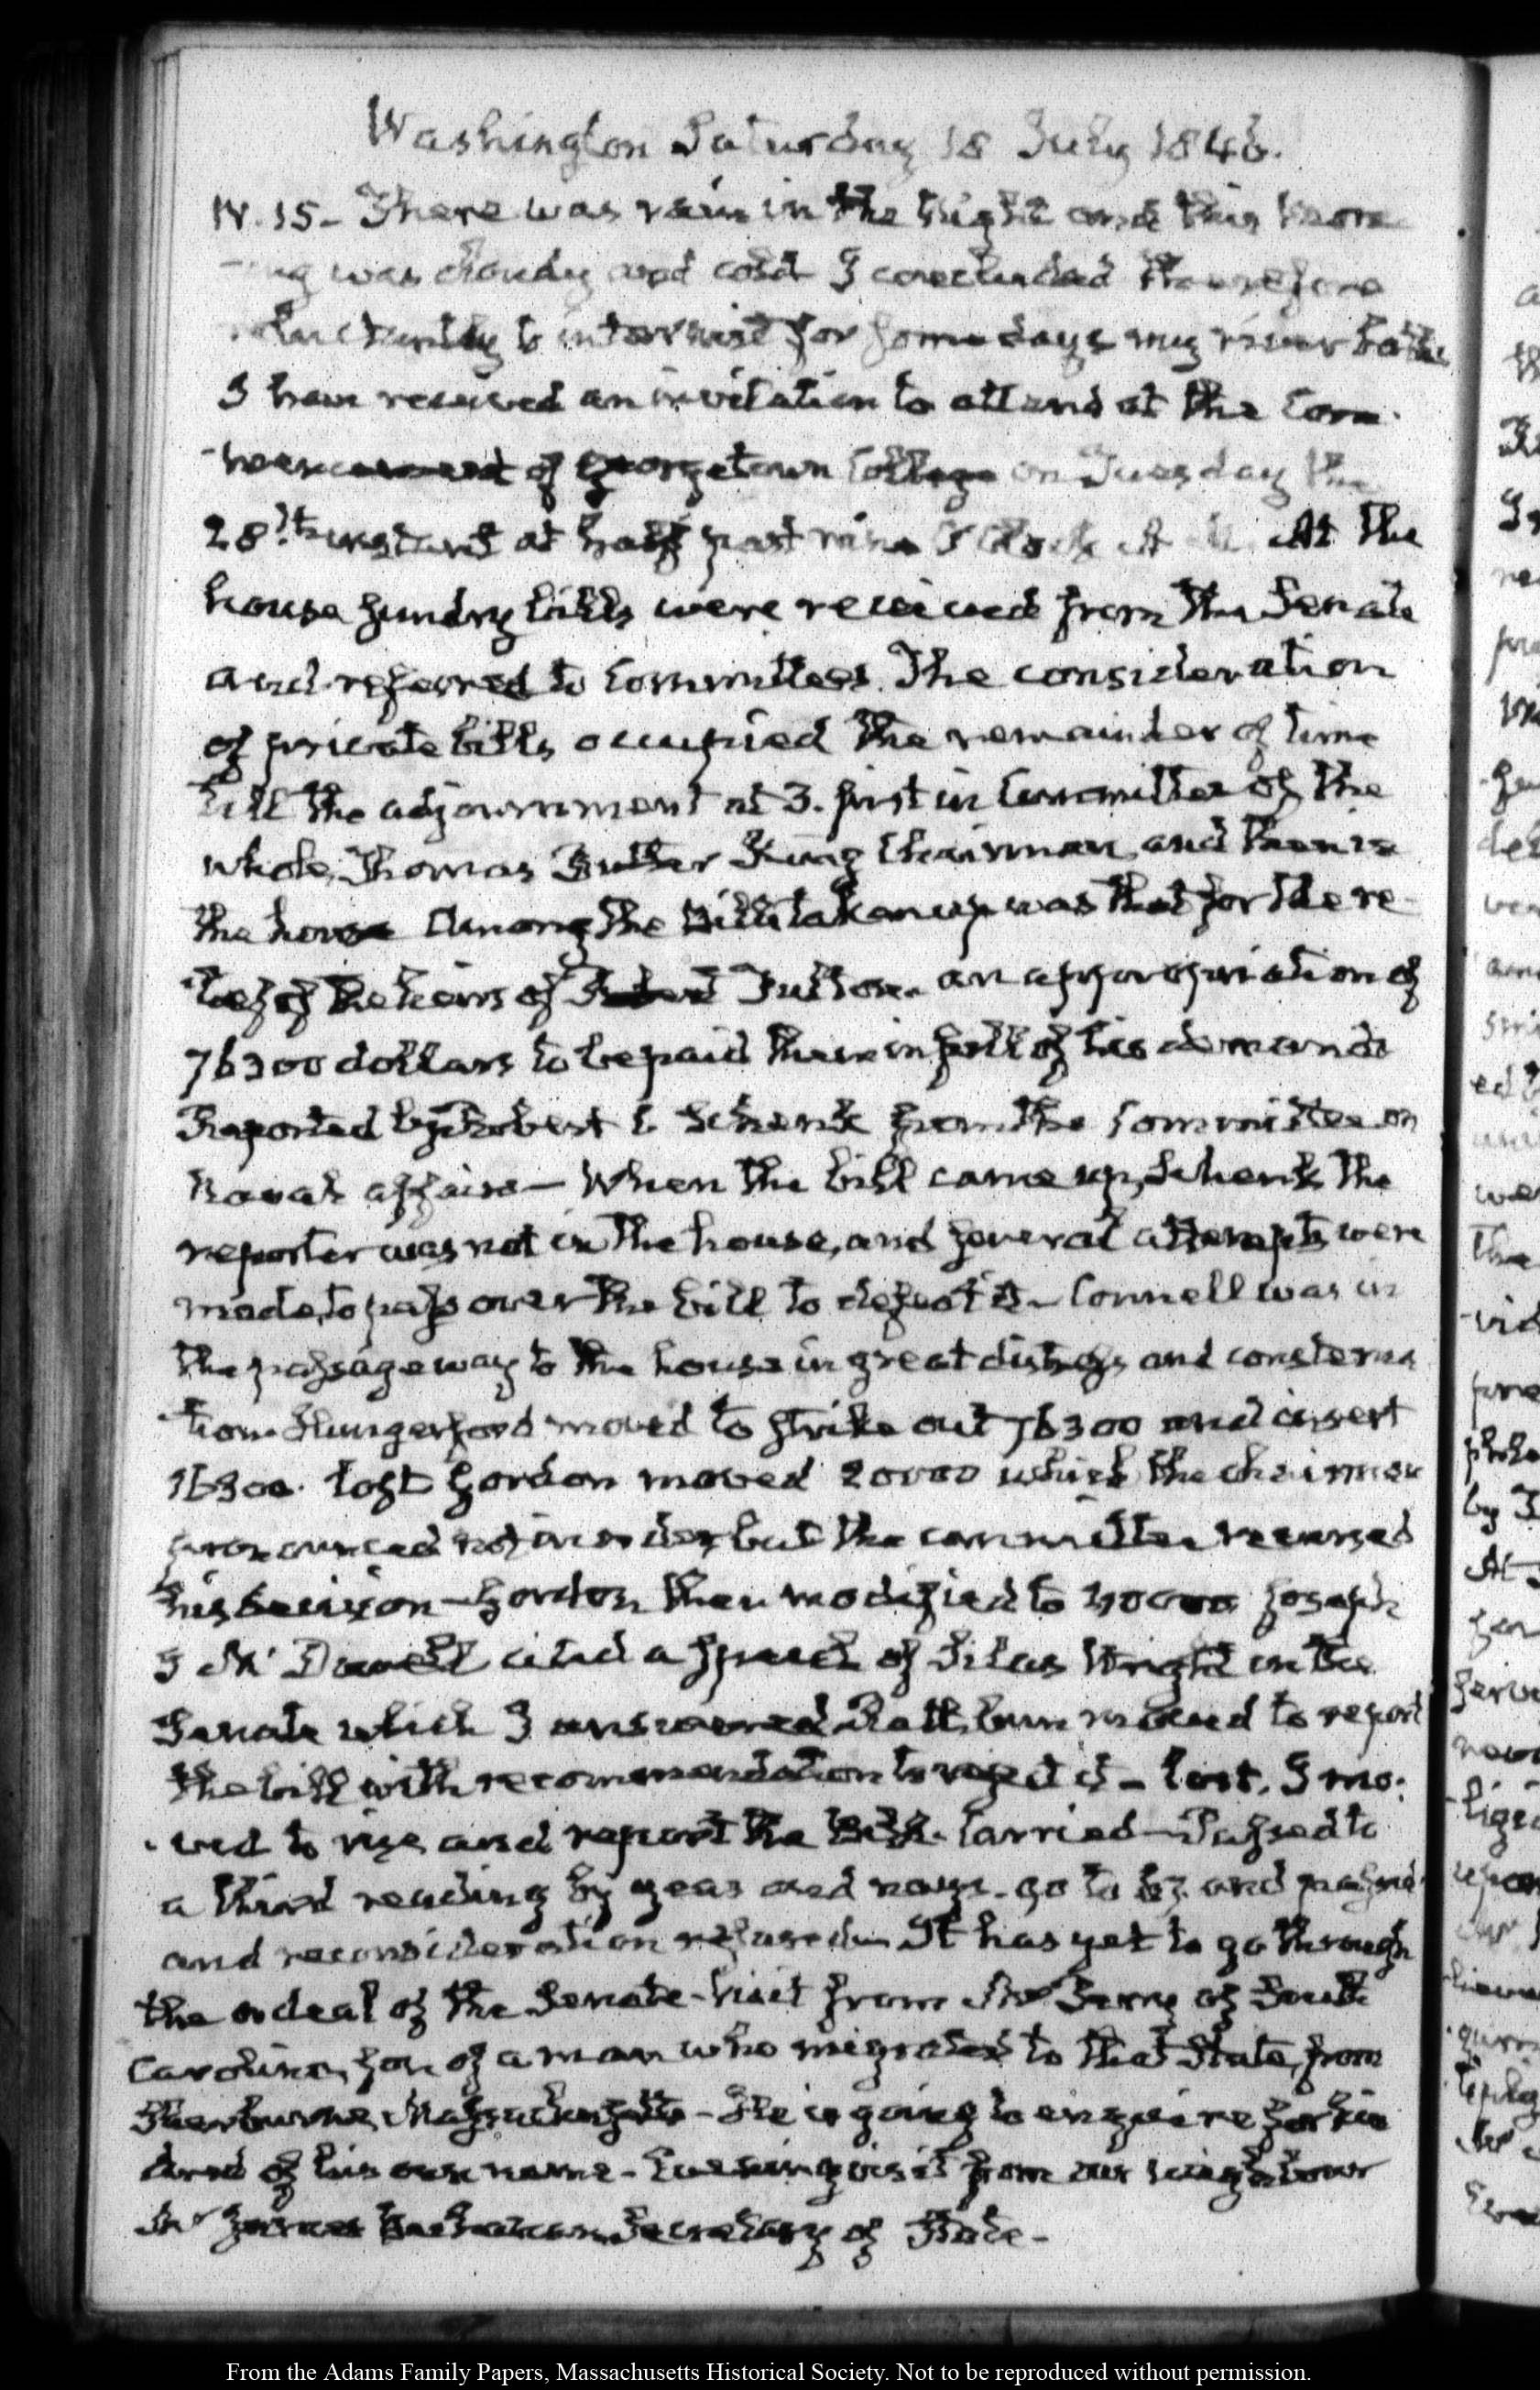 Washington Saturday 18 July 1846.
IV. 15 - There was rain in the Night and this morn
-ing was cloudy and cold I concluded therefore
reluctantly to intermit for some days my river bathe
I have received an invitation to attend at the Com-
-mencement of Georgetown College on Tuesday the
28th instant at half past nine O'Clock A. M. At the
house sundry bills were received from the Senate
and referred to Committees. The consideration
of private bills occupied the remainder of time
till the adjournment at 3. first in Committee of the
whole, Thomas Butler King Chairman, and then in
the house Among the Bills taken up was that for the re-
-lief of the heirs of Robert Fulton. an appropriation of
76300 dollars to be paid them in full of his demands
Reported by Robert C Schenck from the Committee on
Naval affairs - When the bill came up, Schenck the
reporter was not in the house, and several attempts were
made, to pass over the bill to defeat it - Connell was in
the passage way to the house in great distress and consterna
-tion. Hungerford moved to strike out 76300 and insert
16300. lost Gordon moved 20000 which the chairman
pronounced not in order, but the committee reversed
his decision - Gordon then modified to 40000 Joseph
J McDowell cited a speech of Silas Wright in the
Senate which I answered Rathbun moved to report
the bill with recommendation to reject it - lost. I mo-
-ved to rise and report the Bill. Carried - Passed to
a third reading by yeas and nays. 90 to 67. and passed
and reconsideration refused - It has yet to go through
the ordeal of the Senate - Visit from Mr Perry of South
Carolina, son of a man who migrated to that State, from
Sherburne, Massachusetts - He is going to enquire for kin
dred of his own name - Evening visit from our neighbour
Mr James Buchanan Secretary of State -
From the Adams Family Papers, Massachusetts Historical Society. Not to be reproduced without permission.